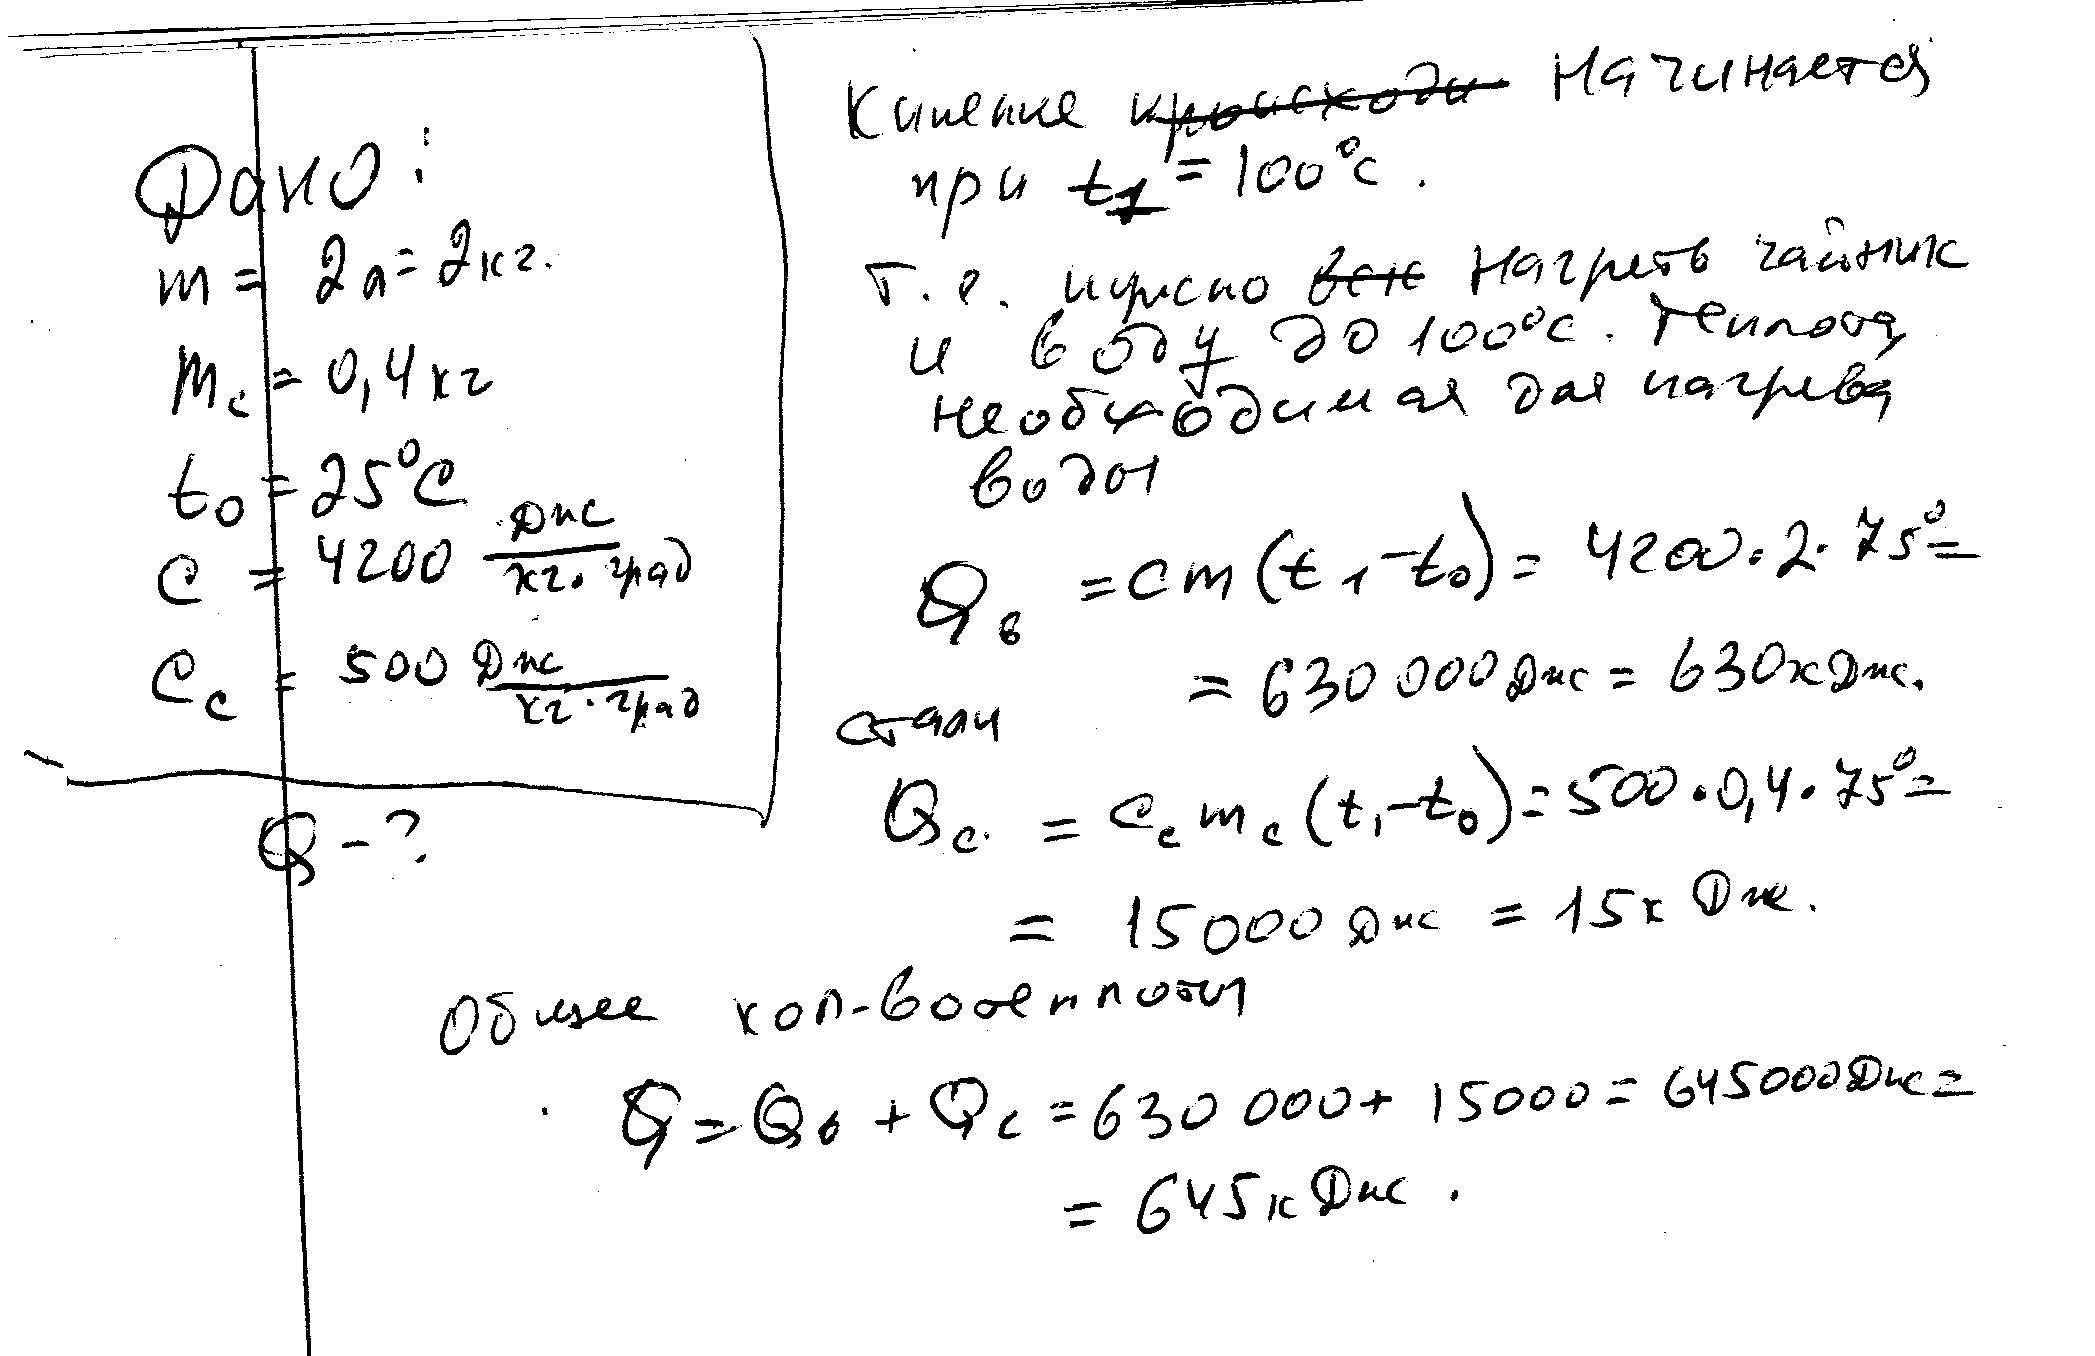 Дано:
m = 2л = 2кг.
mс = 0,4 кг
t0 = 25°C
C = 4200 Дж/кг·град
Cс = 500 Дж/кг·град
Q - ?
Кипение происходи начинается
при t1 = 100°C.
Т.е. нужно всю нагреть чайник
и воду до 100°C. Теплота
необходимая для нагрева
воды
Qв = cm(t1-t0) = 4200·2·75° =
= 630 000 Дж = 630кДж.
стали
Qс. = Cс mс (t1-t0) = 500·0,4·75° =
= 15000 Дж = 15к Дж.
Общее кол-во теплоты
Q = Qв + Qс = 630 000 + 15000 = 645000Дж =
= 645кДж.